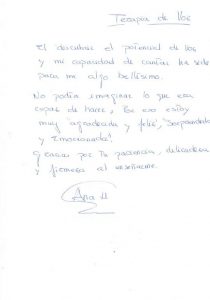 Terapia de Voz
El descubrir el potencial de voz
y mi capacidad de cantar ha sido
para mi algo bellísimo.
No podía imaginar lo que era
capaz de hacer. Por eso estoy
muy "agradecida y feliz", "Sorprendida
y Emocionada".
Gracias por tu paciencia, delicadeza
y firmeza al enseñarme.
Ana M